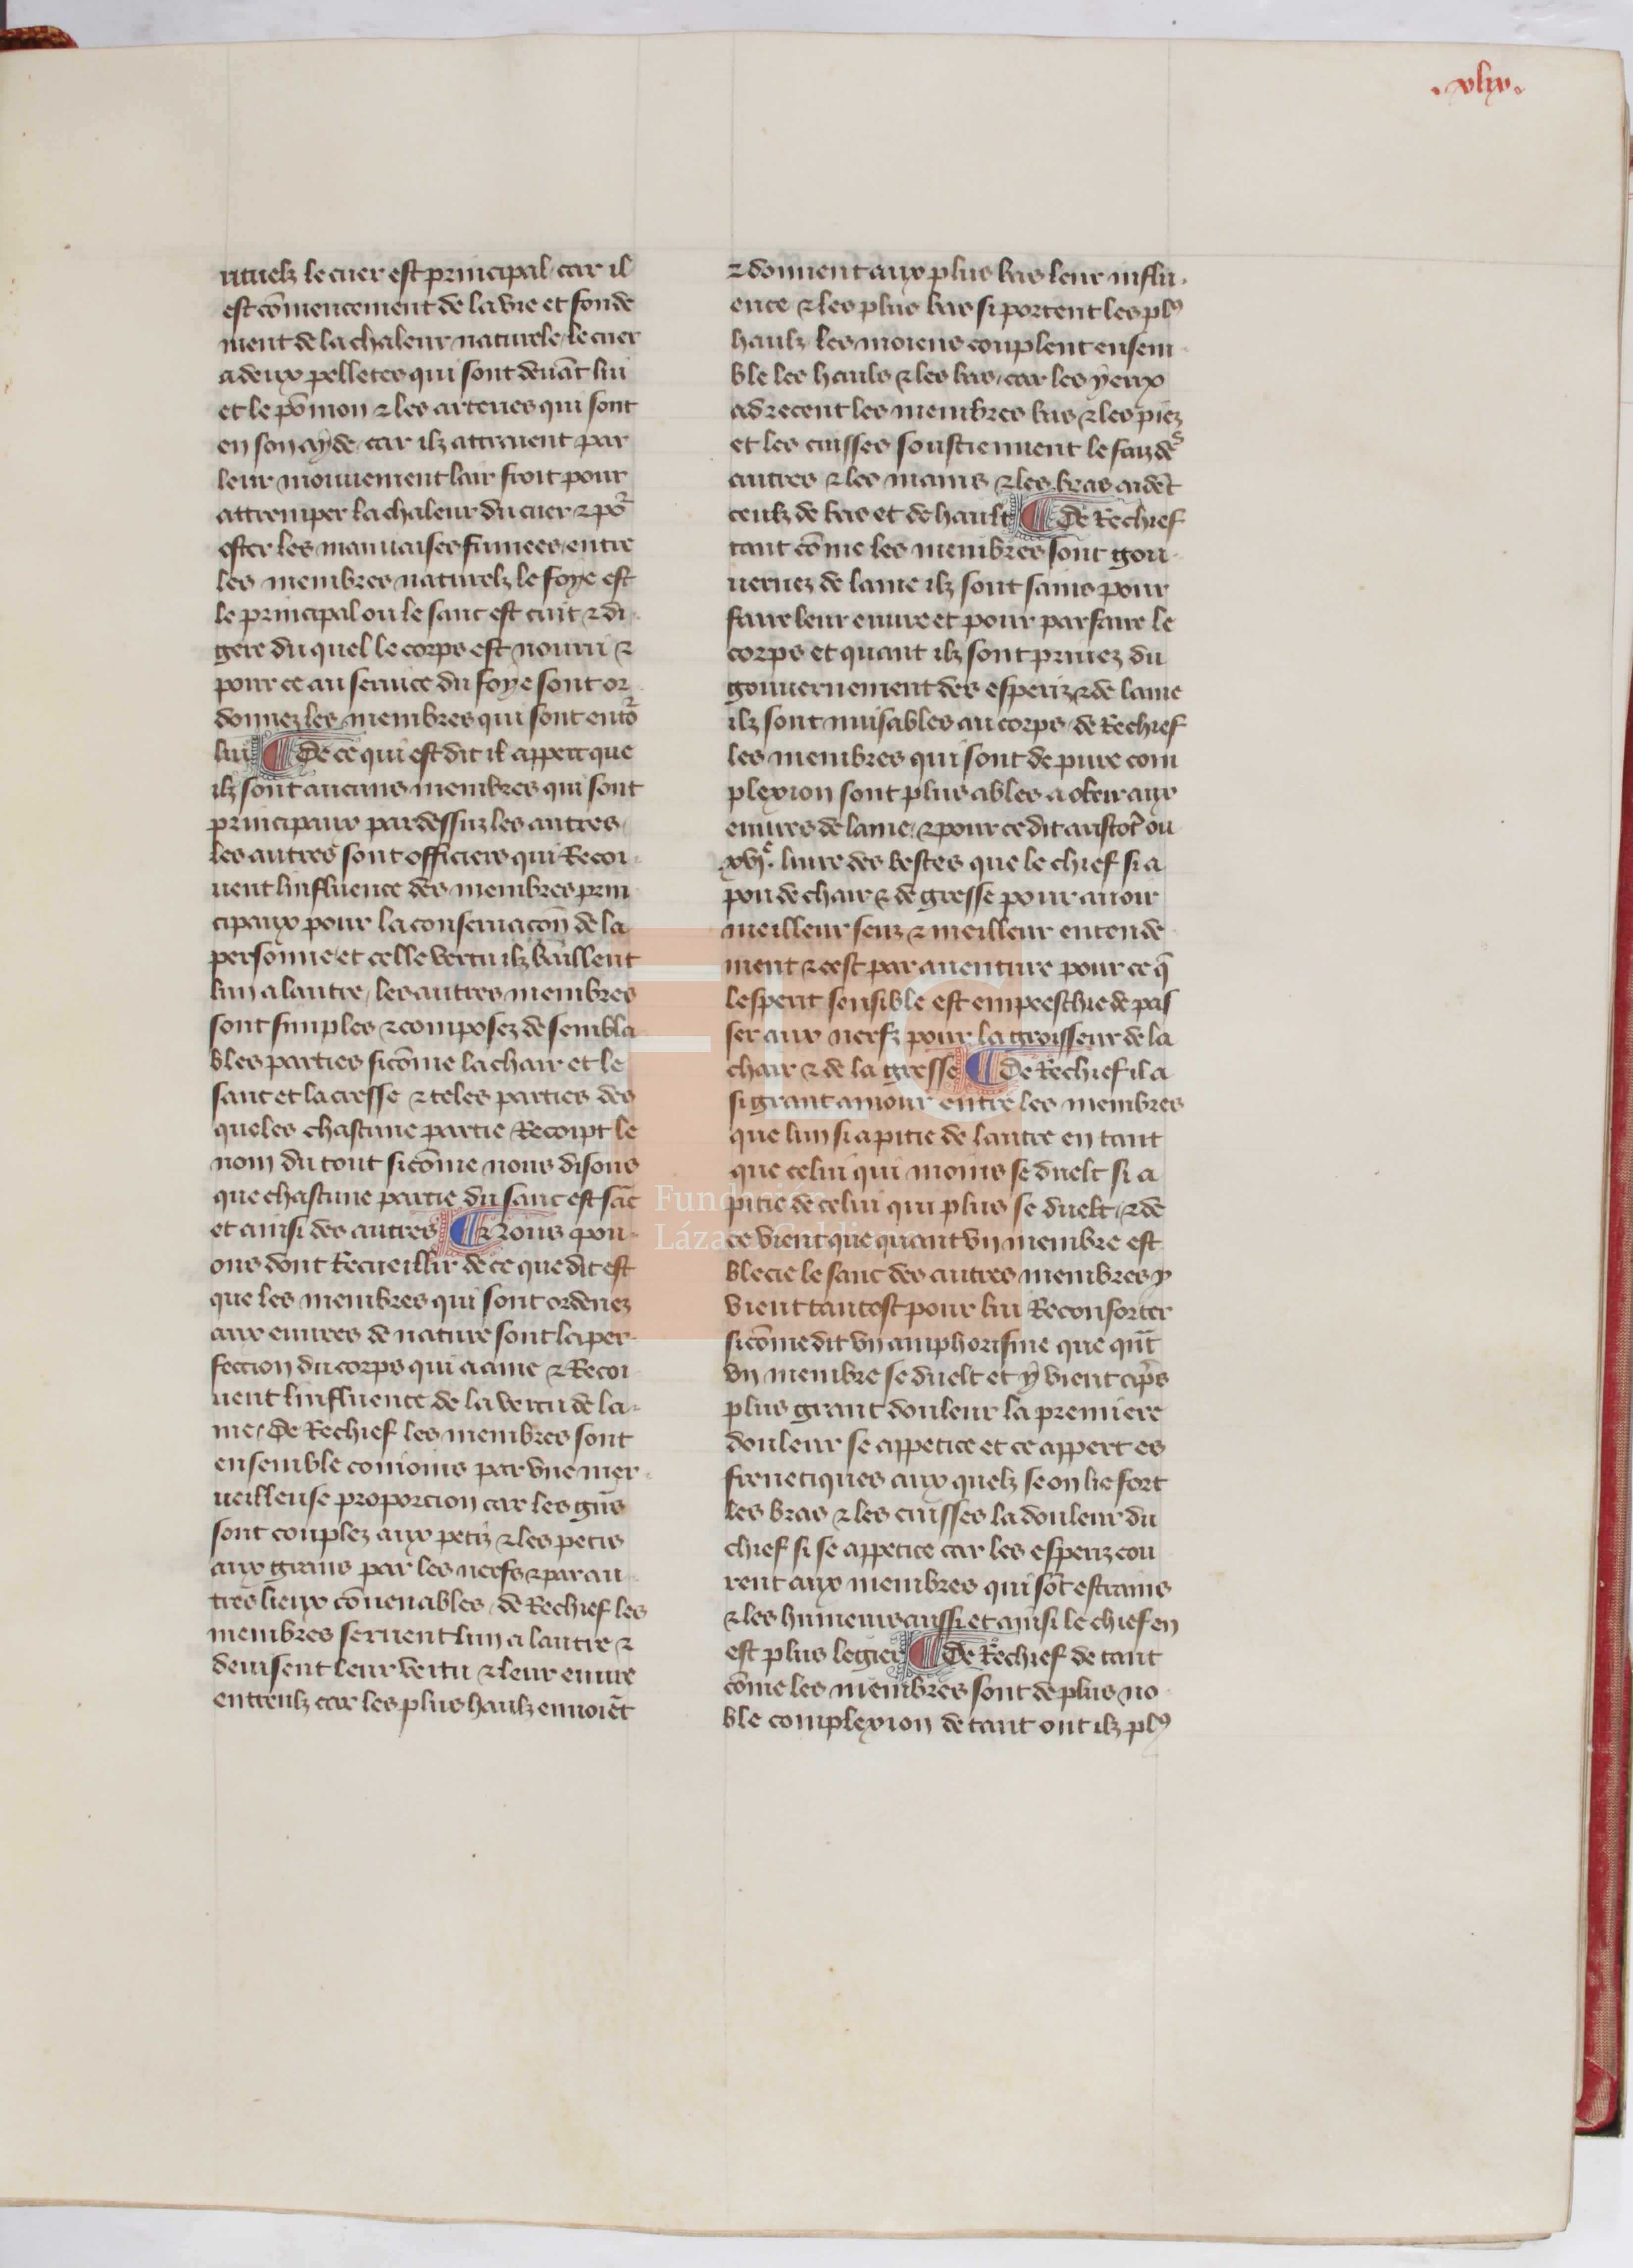 .xlix.
rituelz le cuer est principal car il
est cōmencement de la vie et fonde
ment de la chaleur naturele / le cuer
a deux pelletes qui sont deuāt lui
et le pōmon ⁊ les arteries qui sont
en son ayde / car ilz attraient par
leur mouuement lair froit pour
attremper la chaleur du cuer ⁊ po᷑
oster les mauuaises fumees / entre
les membres naturelz le foye est
le principal ou le sanc est cuit ⁊ di
gere du quel le corps est nourri ⁊
pour ce au seruice du foye sont or
donnez les membres qui sont ento᷑
lui ¶ De ce qui est dit il appert que
ilz sont aucuns membres qui sont
principaux par dessuz les autres
les autres sont officiers qui Recoi
uent linfluence des membres prin
cipaux pour la conseruacōn de la
personne et celle vertu ilz baillent
lun a lautre / les autres membres
sont simples ⁊ composez de sembla
bles parties sicōme la chair et le
sanc et la cresse ⁊ teles parties des
queles chascune partie Recoipt le
nom du tout sicōme nous disons
que chascune partie du sanc est sāc
et ainsi des autres ¶ Nous pou
ons dont Recueillir de ce que dit est
que les membres qui sont ordenez
aux euures de nature sont la per
fection du corps qui a ame ⁊ Recoi
uent linfluence de la vertu de la
me / De Rechief les membres sont
ensemble conioins par vne mer
ueilleuse proporcion car les gn̄s
sont couplez aux petiz ⁊ les petis
aux grans par les nerfs ⁊ par au
tres lieux cōuenables / de Rechief les
membres seruent lun a lautre ⁊
deuisent leur vertu ⁊ leur euure
entreulz car les plus haulz enuoiēt
⁊ donnent aux plus bas leur influ
ence ⁊ les plus bas si portent les plꝰ
haulz / les moiens couplent ensem
ble les hauls ⁊ les bas / car les yeux
adrecent les membres bas ⁊ les piez
et les cuisses soustiennent le faiz des
autres ⁊ les mains ⁊ les bras aidēt
ceulz de bas et de hault ¶ De Rechief
tant cōme les membres sont gou
uernez de lame ilz sont sains pour
faire leur euure et pour parfaire le
corps et quant ilz sont priuez du
gouuernement des esperiz ⁊ de lame
ilz sont nuisables au corps / de Rechief
les membres qui sont de pure com
plexion sont plus ables a obeir aux
euures de lame / ⁊ pour ce dit aristot̄ ou
.xvj.ͤ liure des bestes que le chief si a
pou de chair ⁊ de gresse pour auoir
meilleur senz ⁊ meilleur entende
ment ⁊ cest par auenture pour ce q̄
lesperit sensible est empeeschie de pas
ser aux nerfz pour la groisseur de la
chair ⁊ de la gresse ¶ De Rechief il a
si grant amour entre les membres
que lun si a pitie de lautre en tant
que celui qui moins se duelt si a
pitie de celui qui plus se duelt / ⁊ de
ce vient que quant vn membre est
blecie le sanc des autres membres y
vient tantost pour lui Reconforter
sicōme dit vn amphorisme que qn̄t
vn membre se duelt et y vient ap̄s
plus grant douleur la premiere
douleur se appetice et ce appert es
frenetiques aux quelz se on lie fort
les bras ⁊ les cuisses la douleur du
chief si se appetice car les esperiz cou
rent aux membres qui sōt estrains
⁊ les humeurs aussi et ainsi le chief en
est plus legier ¶ De Rechief de tant
cōme les membres sont de plus no
ble complexion de tant ont ilz plꝰ
Fundación
Lázaro Galdiano